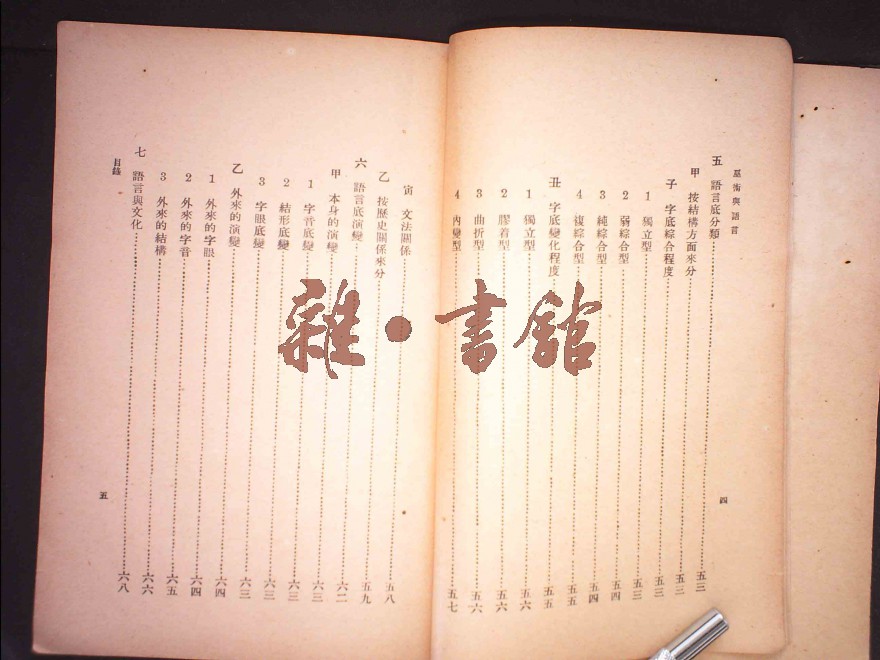 巫術與語言
五 語言底分類………五三
甲 按結構方面來分………五三
子 字底綜合程度………五三
1 獨立型………五三
2 弱綜合型………五四
3 純綜合型………五四
4 複綜合型………五五
丑 字底變化程度………五五
1 獨立型………五六
2 膠着型………五六
3 曲折型………五六
4 內變型………五七
四
寅 文法關係………五八
乙 按歷史關係來分………五九
六 語言底演變………六二
甲 本身的演變………六三
1 字音底變………六三
2 結形底變………六三
3 字眼底變………六三
乙 外來的演變………六四
1 外來的字眼………六四
2 外來的字音………六五
3 外來的結構………六六
七 語言與文化………六八
目錄
五
雜·書館